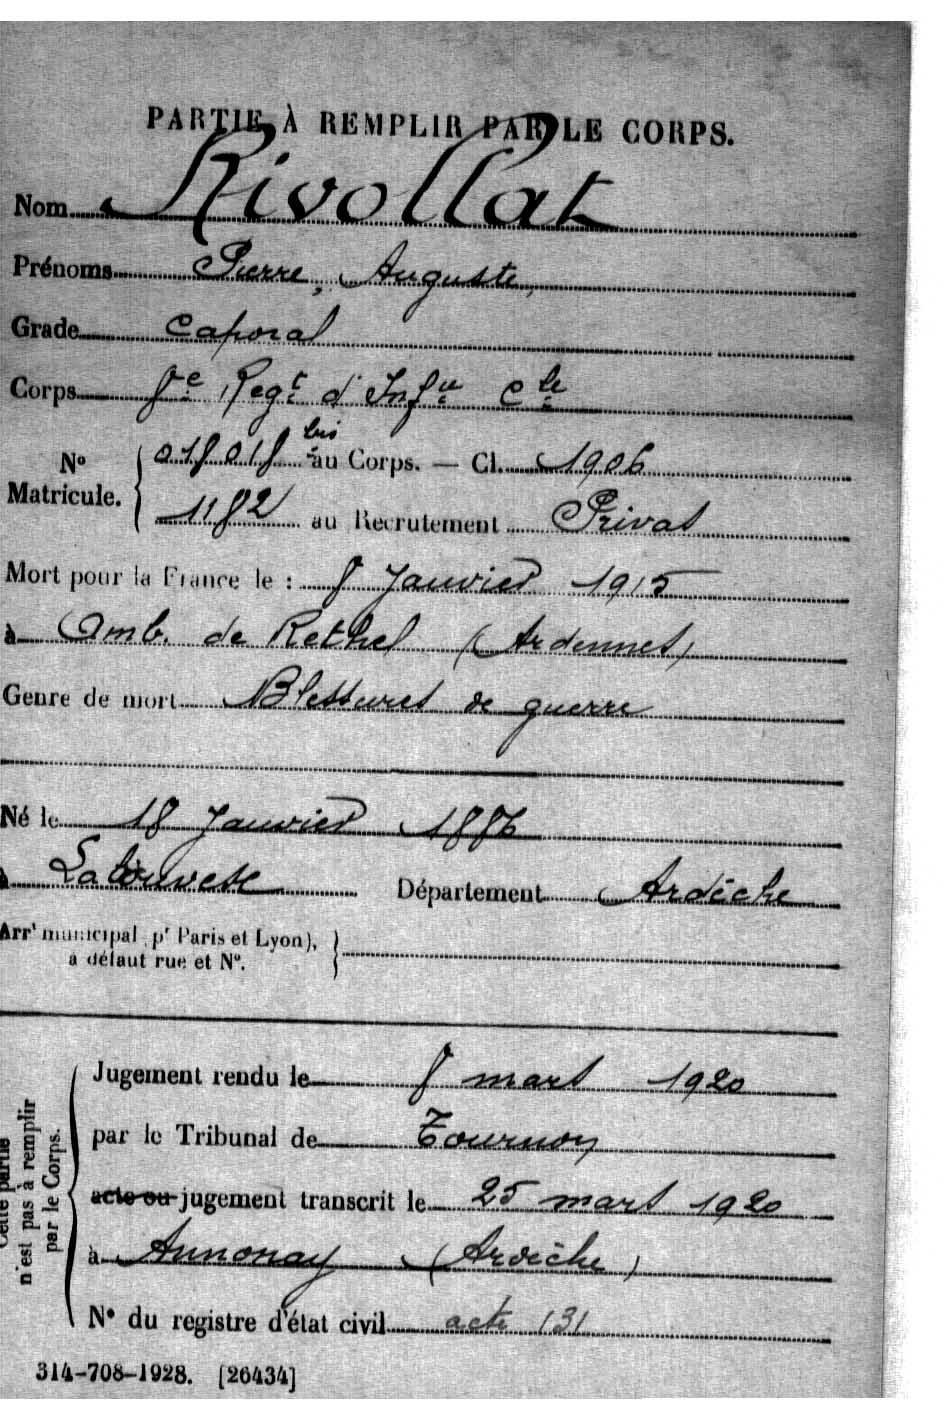 PARTIE À REMPLIR PAR LE CORPS.
Nom Rivollat
Prénoms Pierre, Auguste,
Grade Caporal
Corps 8e Regt d'Infie Cle
No Matricule. 018018 bis au Corps. — Cl. 1906
1182 au Recrutement Privas
Mort pour la France le : 8 Janvier 1915
à Amb. de Rethel (Ardennes)
Genre de mort Blessures de guerre
Né le 18 Janvier 1886
à Lalouvesc Département Ardèche
Arrt municipal pr Paris et Lyon),
à défaut rue et No.
Cette partie n'est pas à remplir par le Corps.
Jugement rendu le 8 mars 1920
par le Tribunal de Tournon
acte ou jugement transcrit le 25 mars 1920
à Annonay (Ardèche)
No du registre d'état civil acte 131
314-708-1928. [26434]